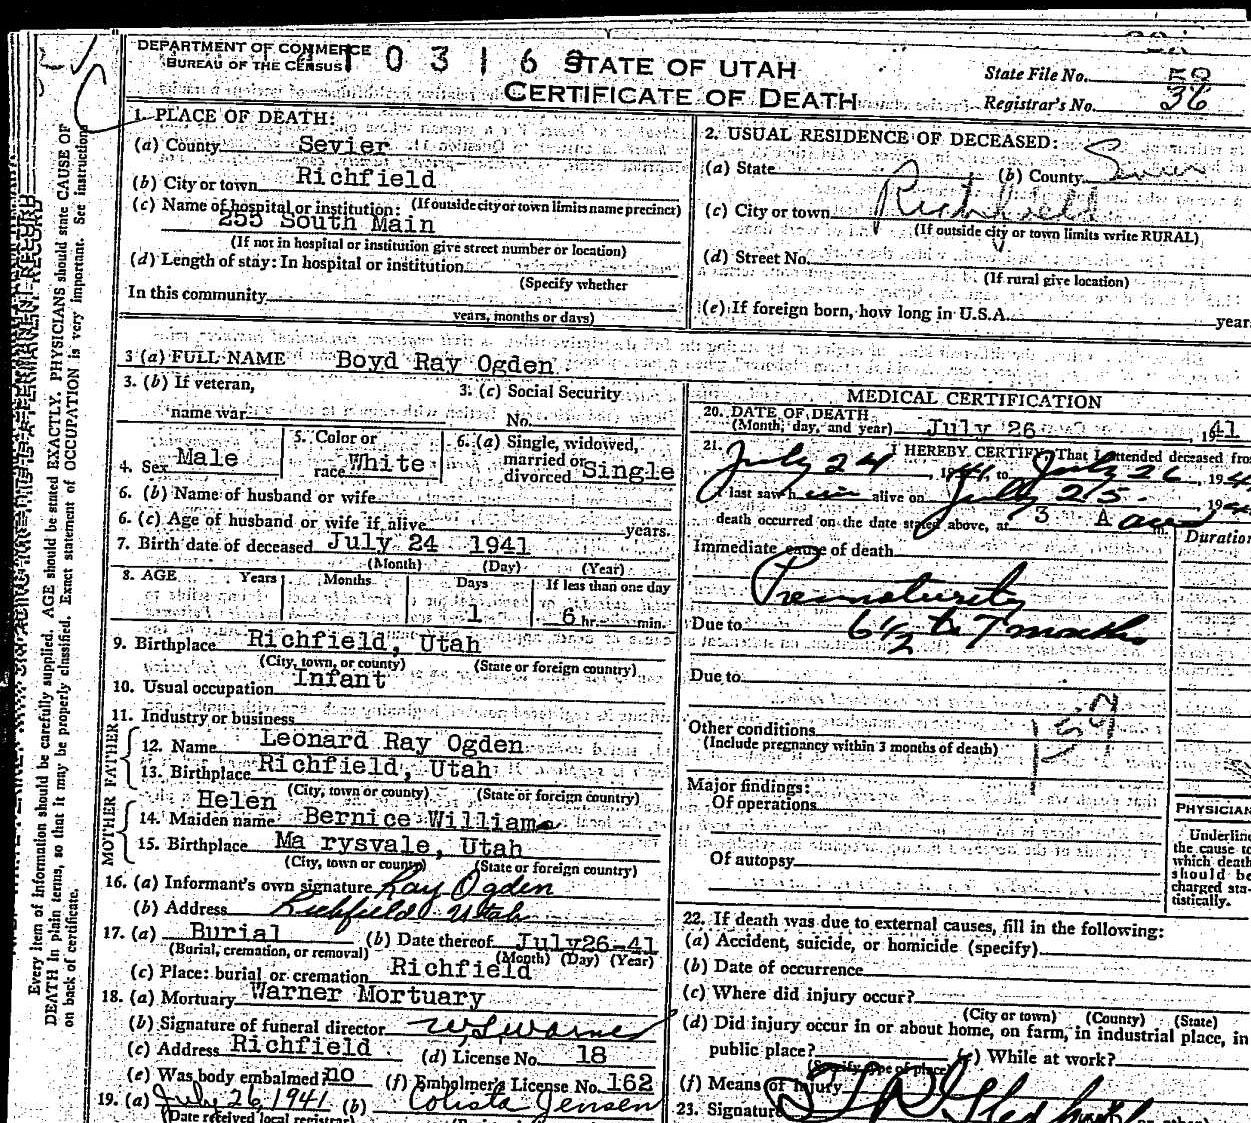 DEPARTMENT OF COMMERCE
BUREAU OF THE CENSUS
STATE OF UTAH
CERTIFICATE OF DEATH
State File No. 50
Registrar's No. 36
1. PLACE OF DEATH:
(a) County Sevier
(b) City or town Richfield
(c) Name of hospital or institution: (If outside city or town limits name precinct)
255 South Main
(If not in hospital or institution give street number or location)
(d) Length of stay: In hospital or institution
(Specify whether
In this community
years, months or days)
2. USUAL RESIDENCE OF DECEASED:
(a) State (b) County Sevier
(c) City or town Richfield
(If outside city or town limits write RURAL)
(d) Street No.
(If rural give location)
(e) If foreign born, how long in U.S.A. year
3 (a) FULL NAME Boyd Ray Ogden
3. (b) If veteran,
name war
3. (c) Social Security
No.
4. Sex Male
5. Color or
race White
6. (a) Single, widowed,
married or
divorced Single
6. (b) Name of husband or wife
6. (c) Age of husband or wife if alive years.
7. Birth date of deceased July 24 1941
(Month) (Day) (Year)
8. AGE Years Months Days If less than one day
1 6 hr. min.
9. Birthplace Richfield, Utah
(City, town, or county) (State or foreign country)
10. Usual occupation Infant
11. Industry or business
FATHER
12. Name Leonard Ray Ogden
13. Birthplace Richfield, Utah
(City, town or county) (State or foreign country)
MOTHER
Helen
14. Maiden name Bernice Williams
15. Birthplace Ma rysvale, Utah
(City, town or county) (State or foreign country)
16. (a) Informant's own signature Ray Ogden
(b) Address Richfield Utah
17. (a) Burial (b) Date thereof July26-41
(Burial, cremation, or removal) (Month) (Day) (Year)
(c) Place: burial or cremation Richfield
18. (a) Mortuary Warner Mortuary
(b) Signature of funeral director W.S. Warner
(c) Address Richfield (d) License No. 18
(e) Was body embalmed? no (f) Embalmer's License No. 162
19. (a) July 26 1941 (b) Colista Jensen
(Date received local registrar)
MEDICAL CERTIFICATION
20. DATE OF DEATH
(Month, day, and year) July 26, 1941
21. I HEREBY CERTIFY, That I attended deceased fro
July 24, 1941, to July 26, 194
I last saw him alive on July 25. 194
death occurred on the date stated above, at 3 A m.
Immediate cause of death
Duration
Prematurity
Due to 6 1/2 to 7 months
Due to
Other conditions
(Include pregnancy within 3 months of death)
159
Major findings:
Of operations
Of autopsy
PHYSICIAN
Underline
the cause to
which death
should be
charged sta-
tistically.
22. If death was due to external causes, fill in the following:
(a) Accident, suicide, or homicide (specify)
(b) Date of occurrence
(c) Where did injury occur?
(City or town) (County) (State)
(d) Did injury occur in or about home, on farm, in industrial place, in
public place? (e) While at work?
(Specify type of place)
(f) Means of injury
23. Signature
Every item of information should be carefully supplied. AGE should be stated EXACTLY. PHYSICIANS should state CAUSE OF
DEATH in plain terms, so that it may be properly classified. Exact statement of OCCUPATION is very important. See instructions
on back of certificate.